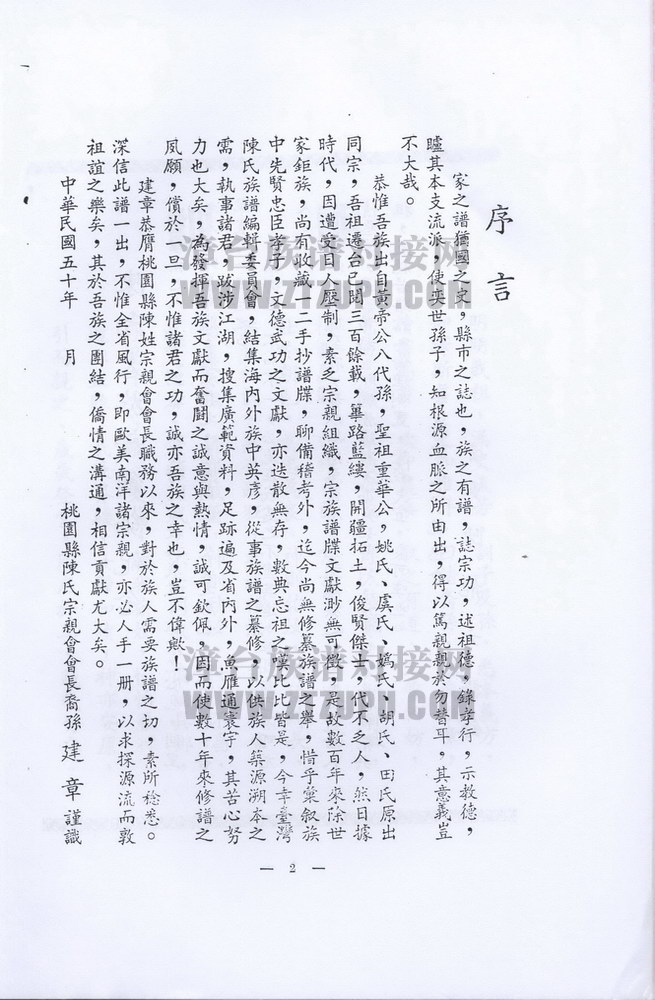 序言
家之譜猶國之史，縣市之誌也，族之有譜，誌宗功，述祖德，錄孝行，示教德，
臚其本支流派，使奕世孫子，知根源血脈之所由出，得以篤親親於勿替耳，其意義豈
不大哉。
恭惟吾族出自黃帝公八代孫，聖祖重華公，姚氏、虞氏、媯氏、胡氏、田氏原出
同宗，吾祖遷台已閱三百餘載，篳路藍縷，開疆拓土，俊賢傑士，代不乏人，然日據
時代，因遭受日人壓制，素乏宗親組織，宗族譜牒文獻渺無可徵，是故數百年來除世
家鉅族，尚有收藏一二手抄譜牒，聊備稽考外，迄今尚無修纂族譜之舉，惜乎彙叙族
中先賢忠臣孝子，文德武功之文獻，亦迭散無存，數典忘祖之嘆比比皆是，今幸臺灣
陳氏族譜編輯委員會，結集海內外族中英彥，從事族譜之纂修，以供族人築源溯本之
需，執事諸君，跋涉江湖，搜集廣範資料，足跡遍及省內外，魚雁通寰宇，其苦心努
力也大矣，為發揮吾族文獻而奮鬪之誠意與熱情，誠可欽佩，因而使數十年來修譜之
夙願，償於一旦，不惟諸君之功，誠亦吾族之幸也，豈不偉歟！
建章恭膺桃園縣陳姓宗親會會長職務以來，對於族人需要族譜之切，素所稔悉。
深信此譜一出，不惟全省風行，即歐美南洋諸宗親，亦必人手一册，以求探源流而敦
祖誼之樂矣，其於吾族之團結，僑情之溝通，相信貢獻尤大矣。
中華民國五十年　月　桃園縣陳氏宗親會會長裔孫 建章 謹識
— 2 —
漳台族谱对接网
www.ztzupu.com
漳台族谱对接网
www.ztzupu.com